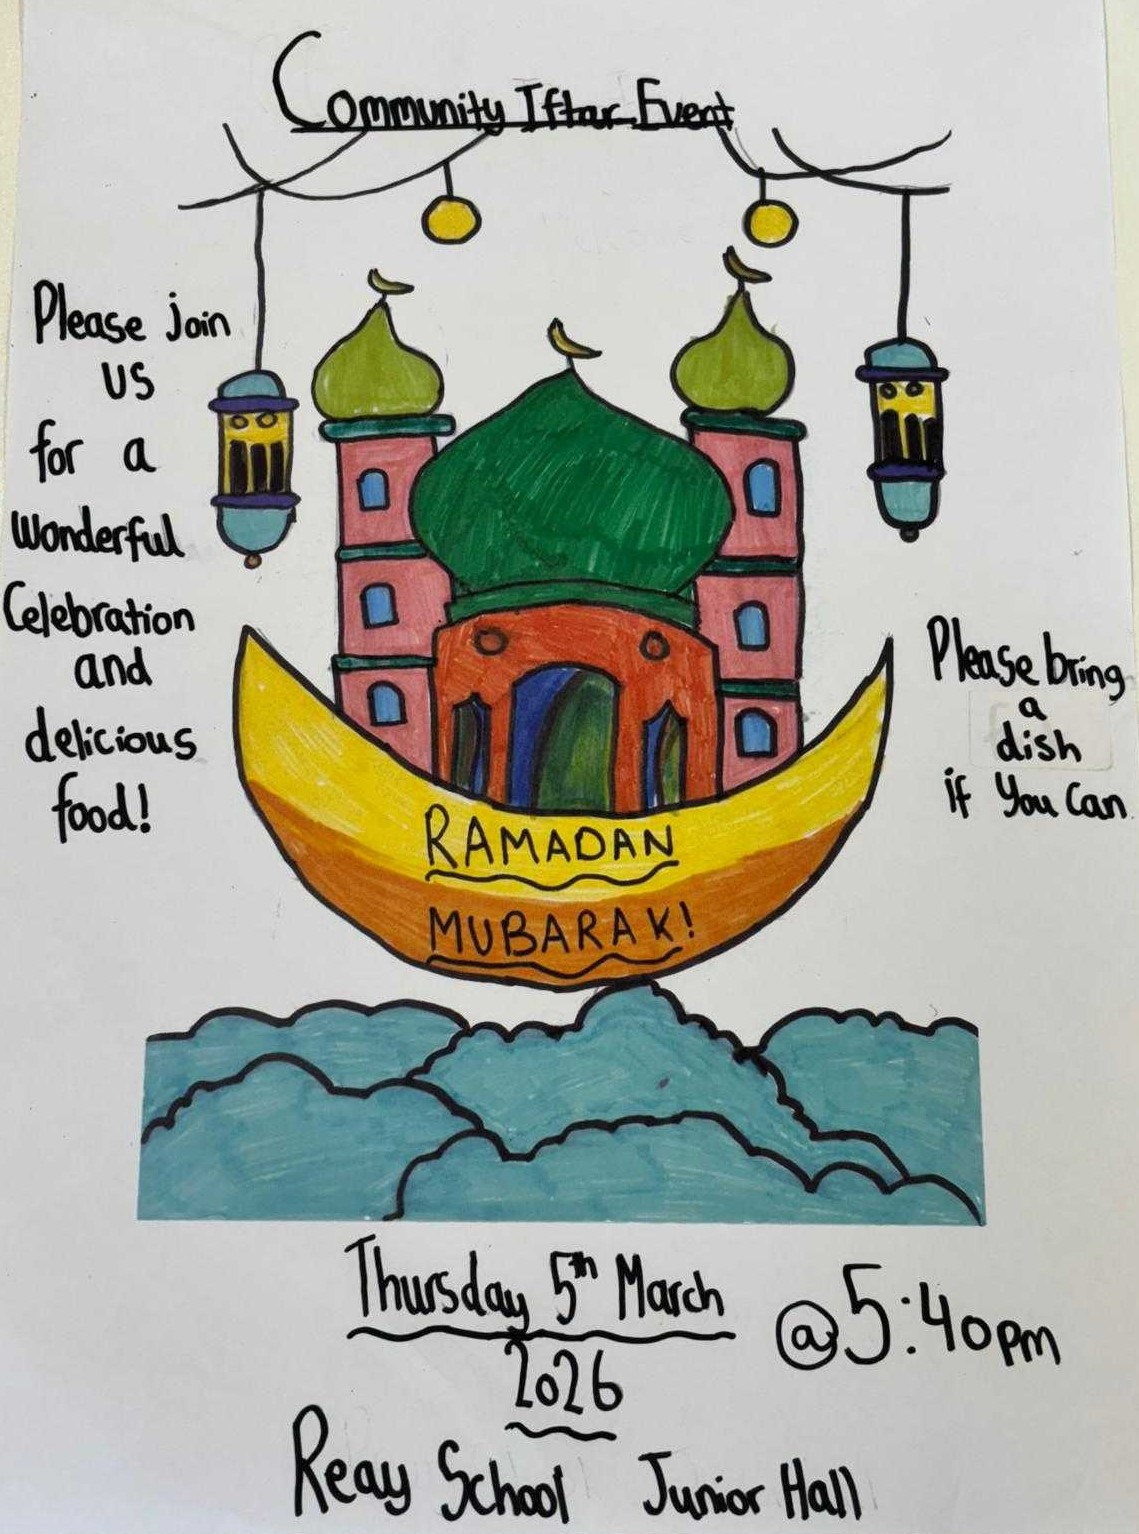 Community Iftar Event
Please join
us
for a
wonderful
Celebration
and
delicious
food!
Please bring
a
dish
if you can
RAMADAN
MUBARAK!
Thursday 5th March
2026
@5:40pm
Reay School Junior Hall